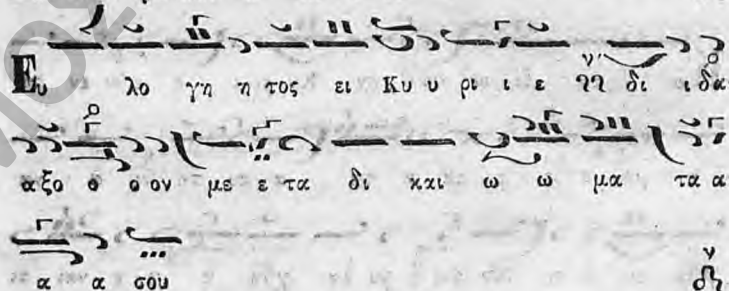 Ευ λο γη η τος ει Κυ υ ρι ι ε ν̓ δι ι δα
αξο ο ο ον με ε τα δι και ω ω μα τα α
α α σου